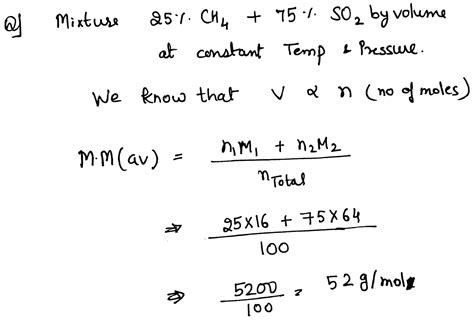 Q) Mixture 25%. CH4 + 75%. SO2 by volume
at constant Temp & Pressure.
We know that V ∝ n (no of moles)
M.M(av) = n1M1 + n2M2
nTotal
⇒ 25×16 + 75×64
100
⇒ 5200 = 52 g/mole
100